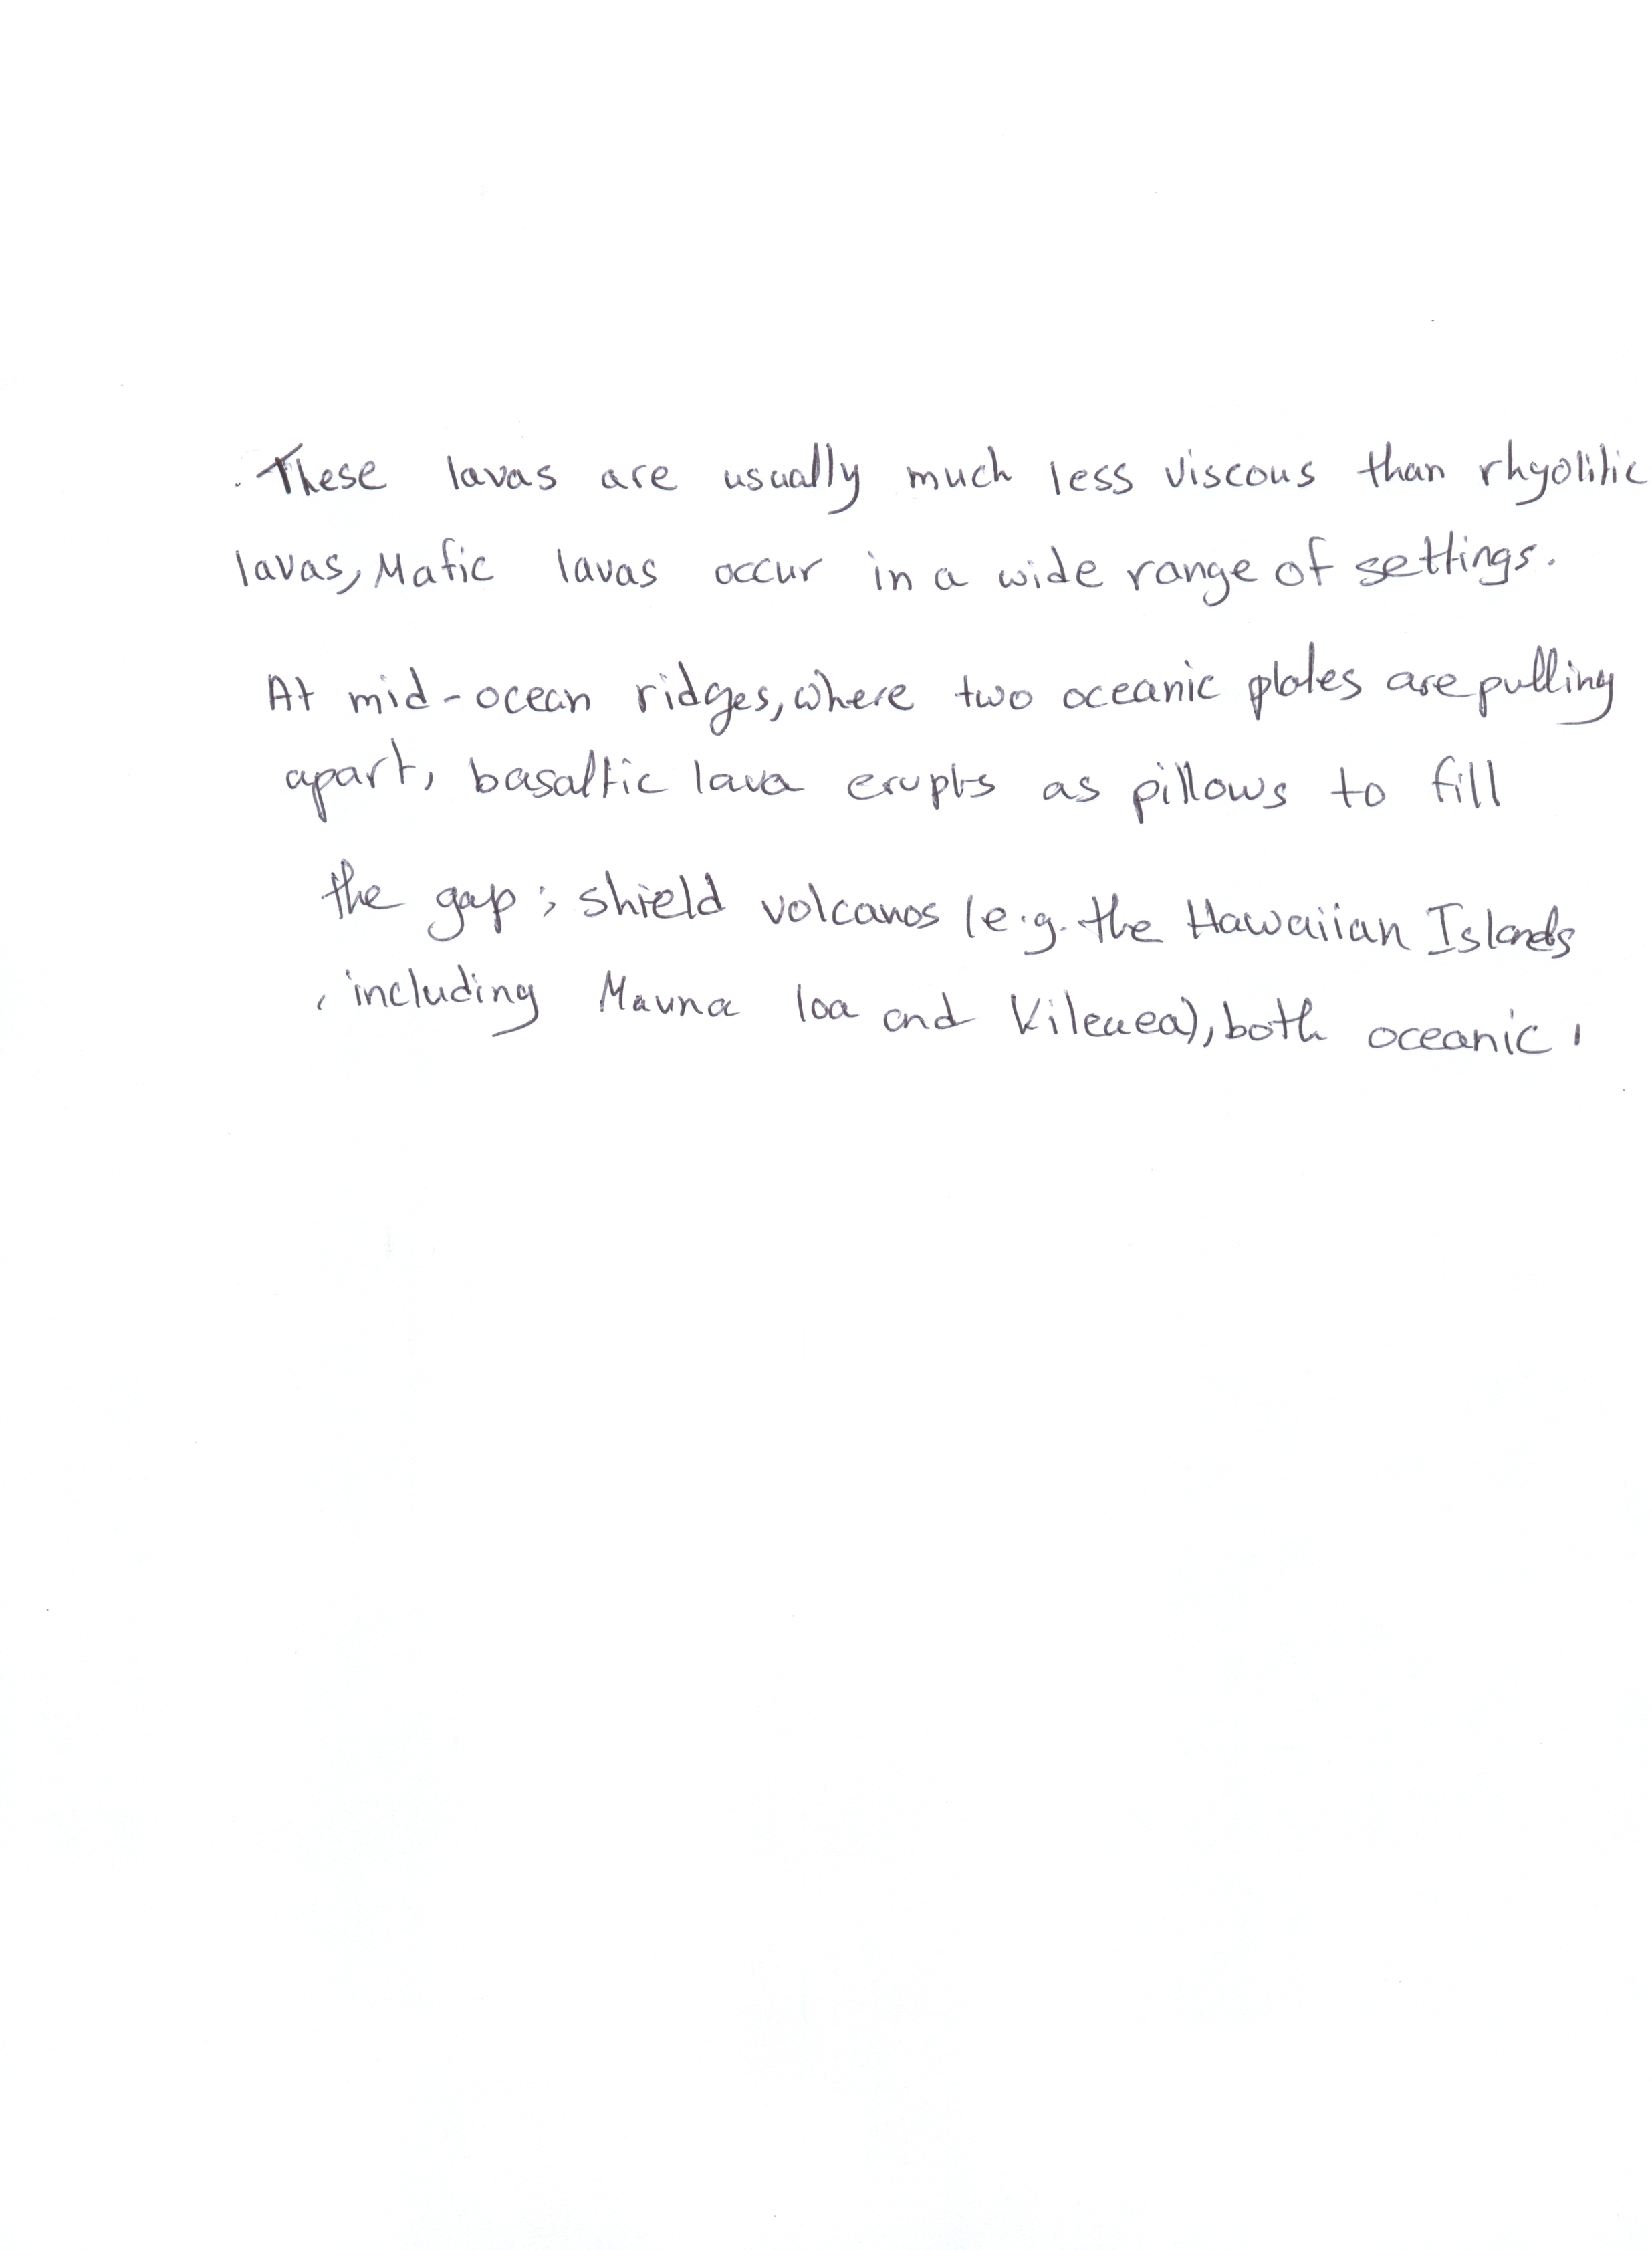 . These lavas are usually much less viscous than rhyolitic
lavas, Mafic lavas occur in a wide range of settings.
At mid-ocean ridges, where two oceanic plates are pulling
apart, basaltic lava erupts as pillows to fill
the gap; shield volcanos (e.g. the Hawaiian Islands
, including Mauna loa and Kileuea), both oceanic ,